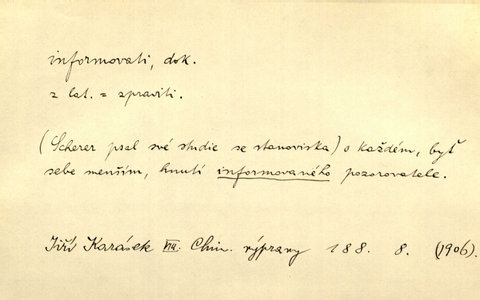 informovati, dok.
z lat. = zpraviti.
(Scherer psal své studie se stanoviska) o každém, byť
sebe menším, hnutí informovaného pozorovatele.
Jiří Karásek VII. Chim. výpravy 188. 8. (1906).